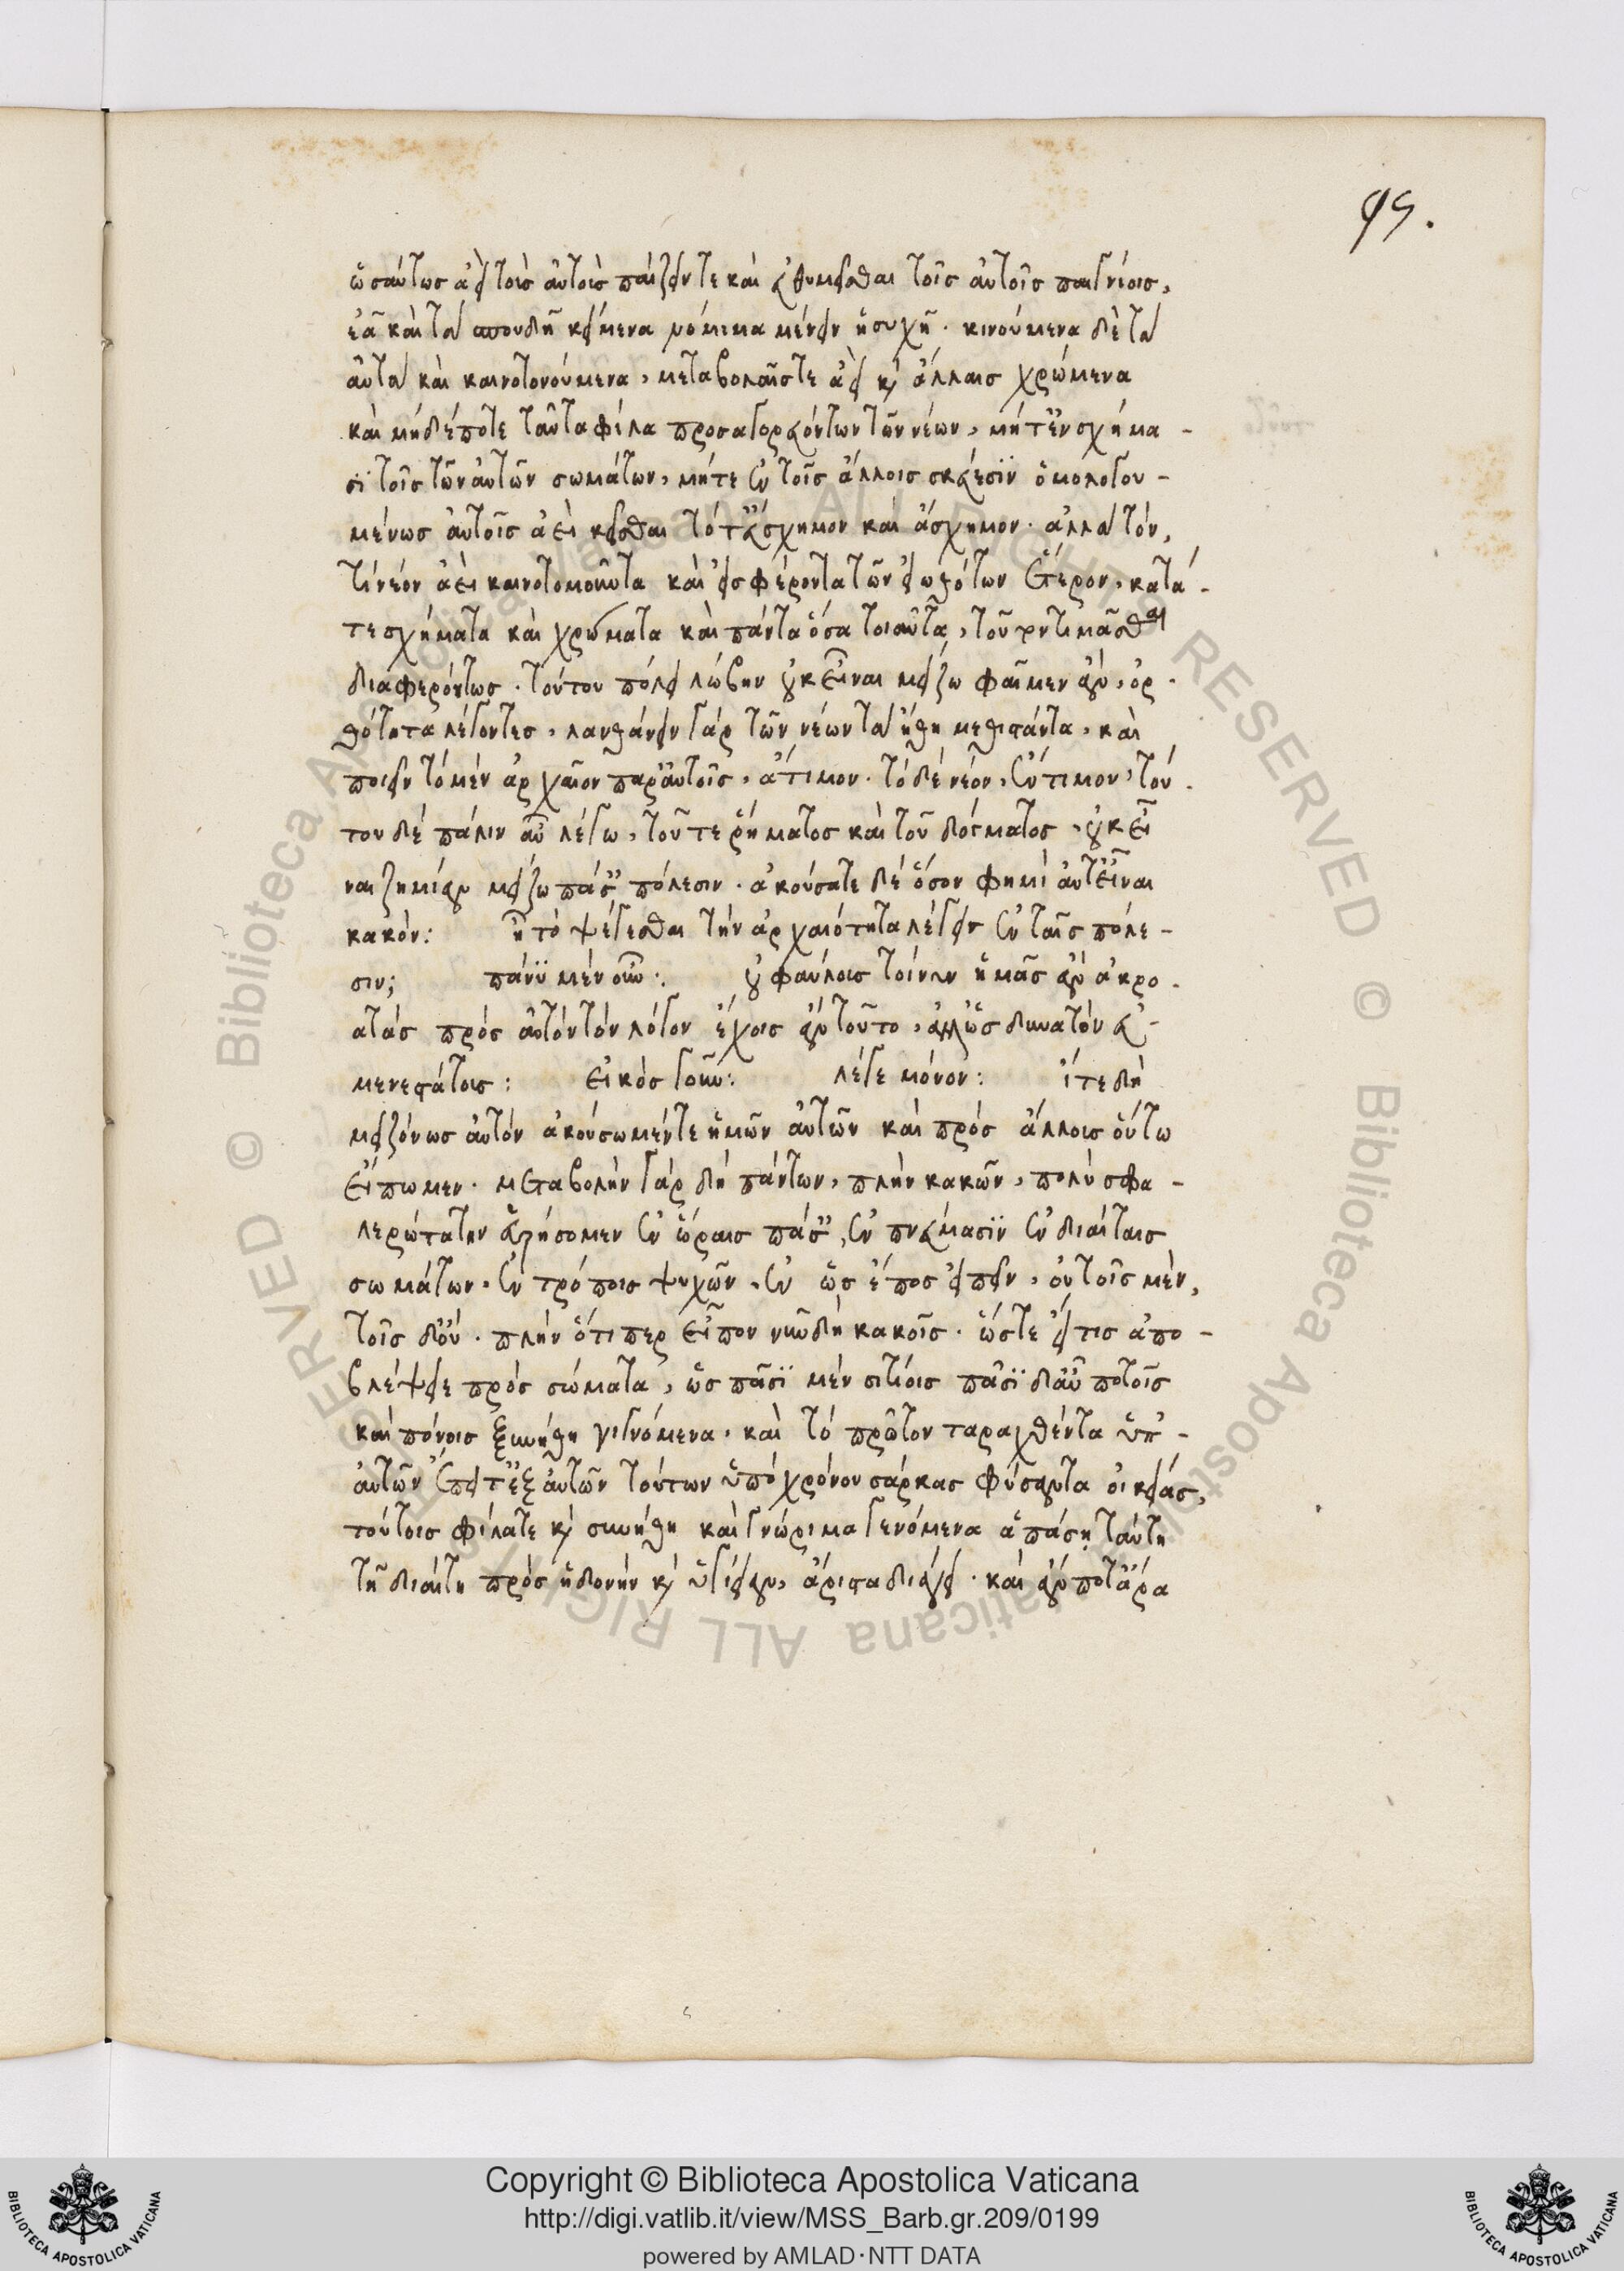 95.
ὡσαύτως ἀεὶ τοῖς αὐτοῖς παίζειν τε καὶ εὐθυμεῖσθαι τοῖς αὐτοῖς παιγνίοις,
ἐᾶ καὶ τὰ σπουδῆ κείμενα νόμιμα μένειν ἡσυχῆ. κινούμενα δὲ τὰ
αὐτὰ καὶ καινοτονούμενα, μεταβολαῖς τε ἀεὶ καὶ ἄλλαις χρώμενα
καὶ μηδέποτε ταὐτὰ φίλα προσαγορευόντων τῶν νέων, μήτ' ἐν σχήμα-
σι τοῖς τῶν αὐτῶν σωμάτων, μήτε ἐν τοῖς ἄλλοις σκεύεσιν ὁμολογου-
μένως αὐτοῖς ἀεὶ κεῖσθαι τό τ' εὔσχημον καὶ ἄσχημον. ἀλλὰ τόν,
τί νέον ἀεὶ καινοτομοῦντα καὶ εἰσφέροντα τῶν εἰωθότων ἕτερον, κατά-
τε σχήματα καὶ χρώματα καὶ πάντα ὅσα τοιαῦτα, τοῦτον τιμᾶσθαι
διαφερόντως. τούτου πόλει λώβην οὐκ εἶναι μείζω φαῖμεν ἂν, ὀρ-
θότητα λέγοντες, λανθάνειν γὰρ τῶν νέων τὰ ἤθη μεθιστάντα, καὶ
ποιεῖν τὸ μὲν ἀρχαῖον παρ' αὐτοῖς, ἄτιμον. τὸ δὲ νέον, ἔντιμον, τού-
του δὲ πάλιν αὖ λέγω, τοῦ τε ῥήματος καὶ τοῦ δόγματος, οὐκ εἶ
ναι ζημίαν μείζω πάσαις πόλεσιν. ἀκούσατε δὲ ὅσον φημὶ αὔτ' εἶναι
κακόν: ἦ τὸ ψέγεσθαι τὴν ἀρχαιότητα λέγεις ἐν ταῖς πόλε-
σιν; πάνυ μὲν οὖν: οὐ φαύλοις τοίνυν ἡμᾶς ἂν ἀκρο-
ατὰς πρὸς αὐτὸν τὸν λόγον ἔχοις ἂν τοῦτο, ἀλλ' ὡς δυνατὸν εὐ-
μενεστάτοις: εἰκὸς γοῦν: λέγε μόνον: ἴτε δὴ
μειζόνως αὐτὸν ἀκούσωμέν τε ἡμῶν αὐτῶν καὶ πρὸς ἄλλοις οὕτω
εἴπωμεν. μεταβολὴν γὰρ δὴ πάντων, πλὴν κακῶν, πολὺ σφα-
λερώτατην εὑρήσομεν ἐν ὥραις πάσαις, ἐν πνεύμασιν ἐν διαίταις
σωμάτων, ἐν τρόποις ψυχῶν, ἐν ὡς ἔπος εἰπεῖν, οὐ τοῖς μὲν,
τοῖς δ' οὔ. πλὴν ὅτι περ εἶπον νῦν δὴ κακοῖς. ὥστε εἴ τις ἀπο-
βλέψειε πρὸς σώματα, ὡς πᾶσι μὲν σιτίοις πᾶσι δ' αὖ ποτοῖς
καὶ πόνοις ξυνήθη γιγνόμενα, καὶ τὸ πρῶτον ταραχθέντα ὑπ'-
αὐτῶν ἔπειτ' ἐξ αὐτῶν τούτων ὑπὸ χρόνου σάρκας φύσαντα οἰκείας,
τούτοις φίλα τε καὶ συνήθη καὶ γνώριμα γενόμενα ἁπάσῃ ταύτη
τῆ διαίτη πρὸς ἡδονὴν καὶ ὑγίειαν, ἄριστα διάγει. καὶ ἄν ποτ' ἄρα
Copyright © Biblioteca Apostolica Vaticana
http://digi.vatlib.it/view/MSS_Barb.gr.209/0199
powered by AMLAD·NTT DATA
BIBLIOTECA APOSTOLICA VATICANA
BIBLIOTECA APOSTOLICA VATICANA
© Biblioteca Apostolica Vaticana ALL RIGHTS RESERVED © Biblioteca Apostolica Vaticana ALL RIGHTS RESERVED